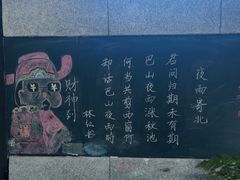 夜雨寄北
君问归期未有期
巴山夜雨涨秋池
何当共剪西窗烛
却话巴山夜雨时
财神到